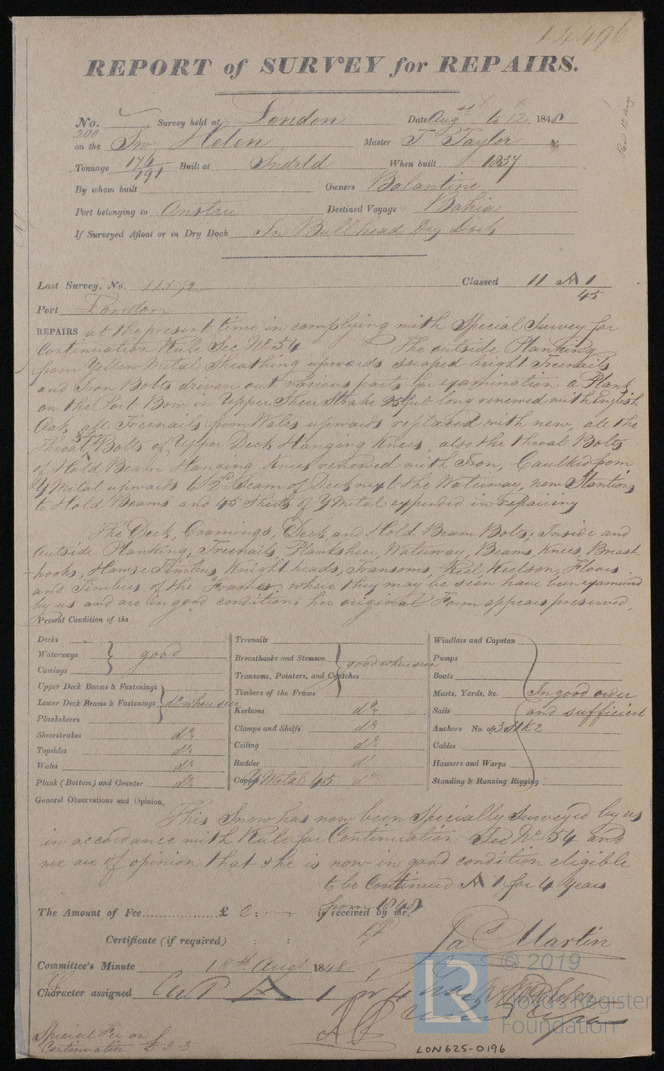 14496
REPORT of SURVEY for REPAIRS.
No. Survey held at London Date Augt 4 to 12 1848
200
on the Snw Helen Master T Taylor
Tonnage 176/191 Built at When built 1837
By whom built Owners Balantine
Port belonging to Destined Voyage Bahia
If Surveyed Afloat or in Dry Dock In Bull head Dry Dock
Last Survey, No. Classed 11 A 1
45
Port London
REPAIRS at the present time in complying with Special Survey for
Continuation Rule Sec No 54 The outside Planking
from Yellow Metal Sheathing upwards scraped bright Treenails
and Iron Bolts driven out various parts for examination a Plank
on the Port Bow in Upper Sheer Strake 25 feet long renewed with English
Oak all Treenails from Wales upwards replaced with new, all the
Throat Bolts of Upper Deck Hanging Knees, also the throat Bolts
of Hold Beam Hanging Knees renewed with Iron, Caulked from
Y Metal upwards Seam of Deck next the Waterway, new Stantions
to Hold Beams and 45 Sheets of Y Metal expended in repairing
The Deck, Comings, Deck and Hold Beam Bolts, Inside and
Outside Planking, Treenails, Planksheer, Waterway, Beams, Knees, Breast
hooks, Hawse Timbers, Knight heads, Transoms, Keel Keelson, Floors
and Timbers of the Frame, where they may be seen have been examined
by us and are in good condition; her original Form appears preserved.
Present Condition of the
Decks
Waterways good
Comings
Upper Deck Beams & Fastenings
Lower Deck Beams & Fastenings do where seen
Planksheers
Sheerstrakes do
Topsides do
Wales do
Plank (Bottom) and Counter do
Treenails
Breasthooks and Stemson good where seen
Transoms, Pointers, and Crutches
Timbers of the Frame
Keelsons do
Clamps and Shelfs do
Ceiling do
Rudder do
Copper Y Metal 45 do
Windlass and Capstan
Pumps
Boats
Masts, Yards, &c. In good order
Sails and sufficient
Anchors No. of 3
Cables
Hawsers and Warps
Standing & Running Rigging
General Observations and Opinion,
This Snow has now been Specially Surveyed by us
in accordance with Rule for Continuation Sec No 54 and
we are of opinion that she is now in good condition eligible
to be Continued A 1 for 4 Years
from 1848
The Amount of Fee............ £ 2 if received by me,
Certificate (if required) : :
Jas Martin
Committee's Minute 18th Augt 1848
Character assigned Cont A 1 for 4
Special Fee on
Continuation £ 3.3
LR © 2019
Lloyd's Register
Foundation
LON625-0196